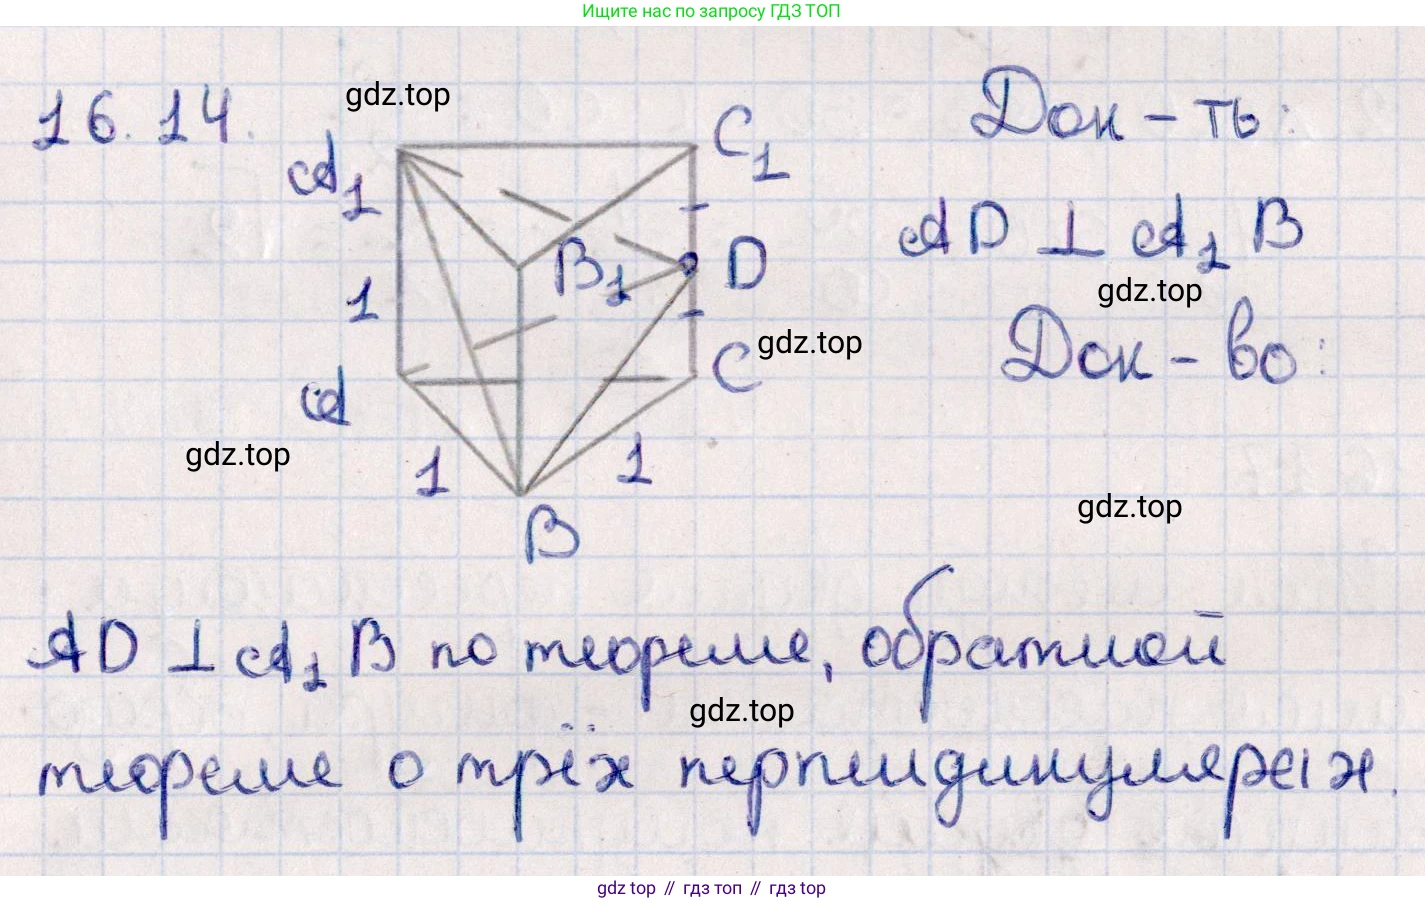 Ищите нас по запросу ГДЗ ТОП
16.14.
gdz.top
Док-ть:
A1
C1
AD ⊥ A1B
1
B1
D
gdz.top
Док-во:
gdz.top
A
C
gdz.top
1
1
gdz.top
B
AD ⊥ A1B по теореме, обратной
gdz.top
теореме о трёх перпендикулярах.
gdz top // гдз топ // гдз top